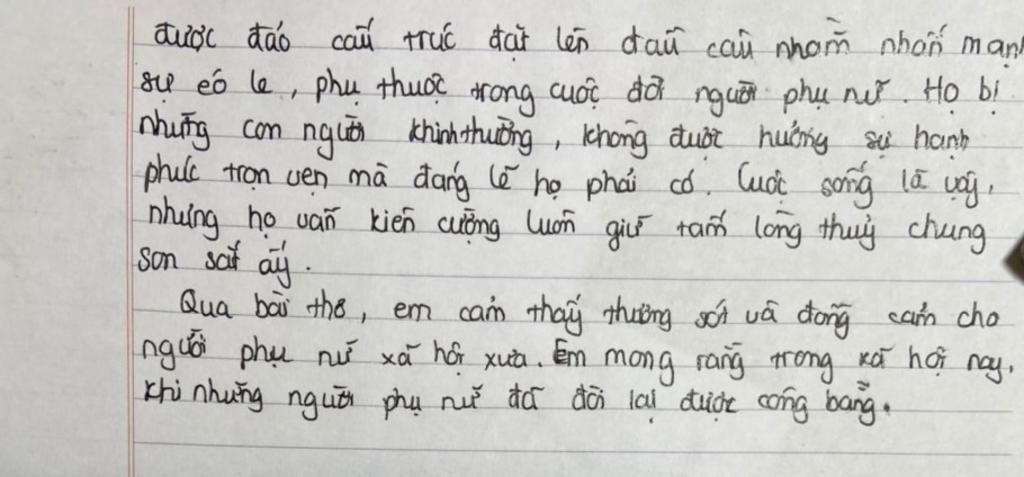 được đảo cấu trúc đặt lên đầu câu nhằm nhấn mạnh
sự éo le, phụ thuộc trong cuộc đời người phụ nữ. Họ bị
những con người khinh thường, không được hưởng sự hạnh
phúc trọn vẹn mà đáng lẽ họ phải có. Cuộc sống là vậy,
nhưng họ vẫn kiên cường luôn giữ tấm lòng thuỷ chung
son sắt ấy.
Qua bài thơ, em cảm thấy thương sót và đồng cảm cho
người phụ nữ xã hội xưa. Em mong rằng trong xã hội nay,
khi những người phụ nữ đã đòi lại được công bằng.